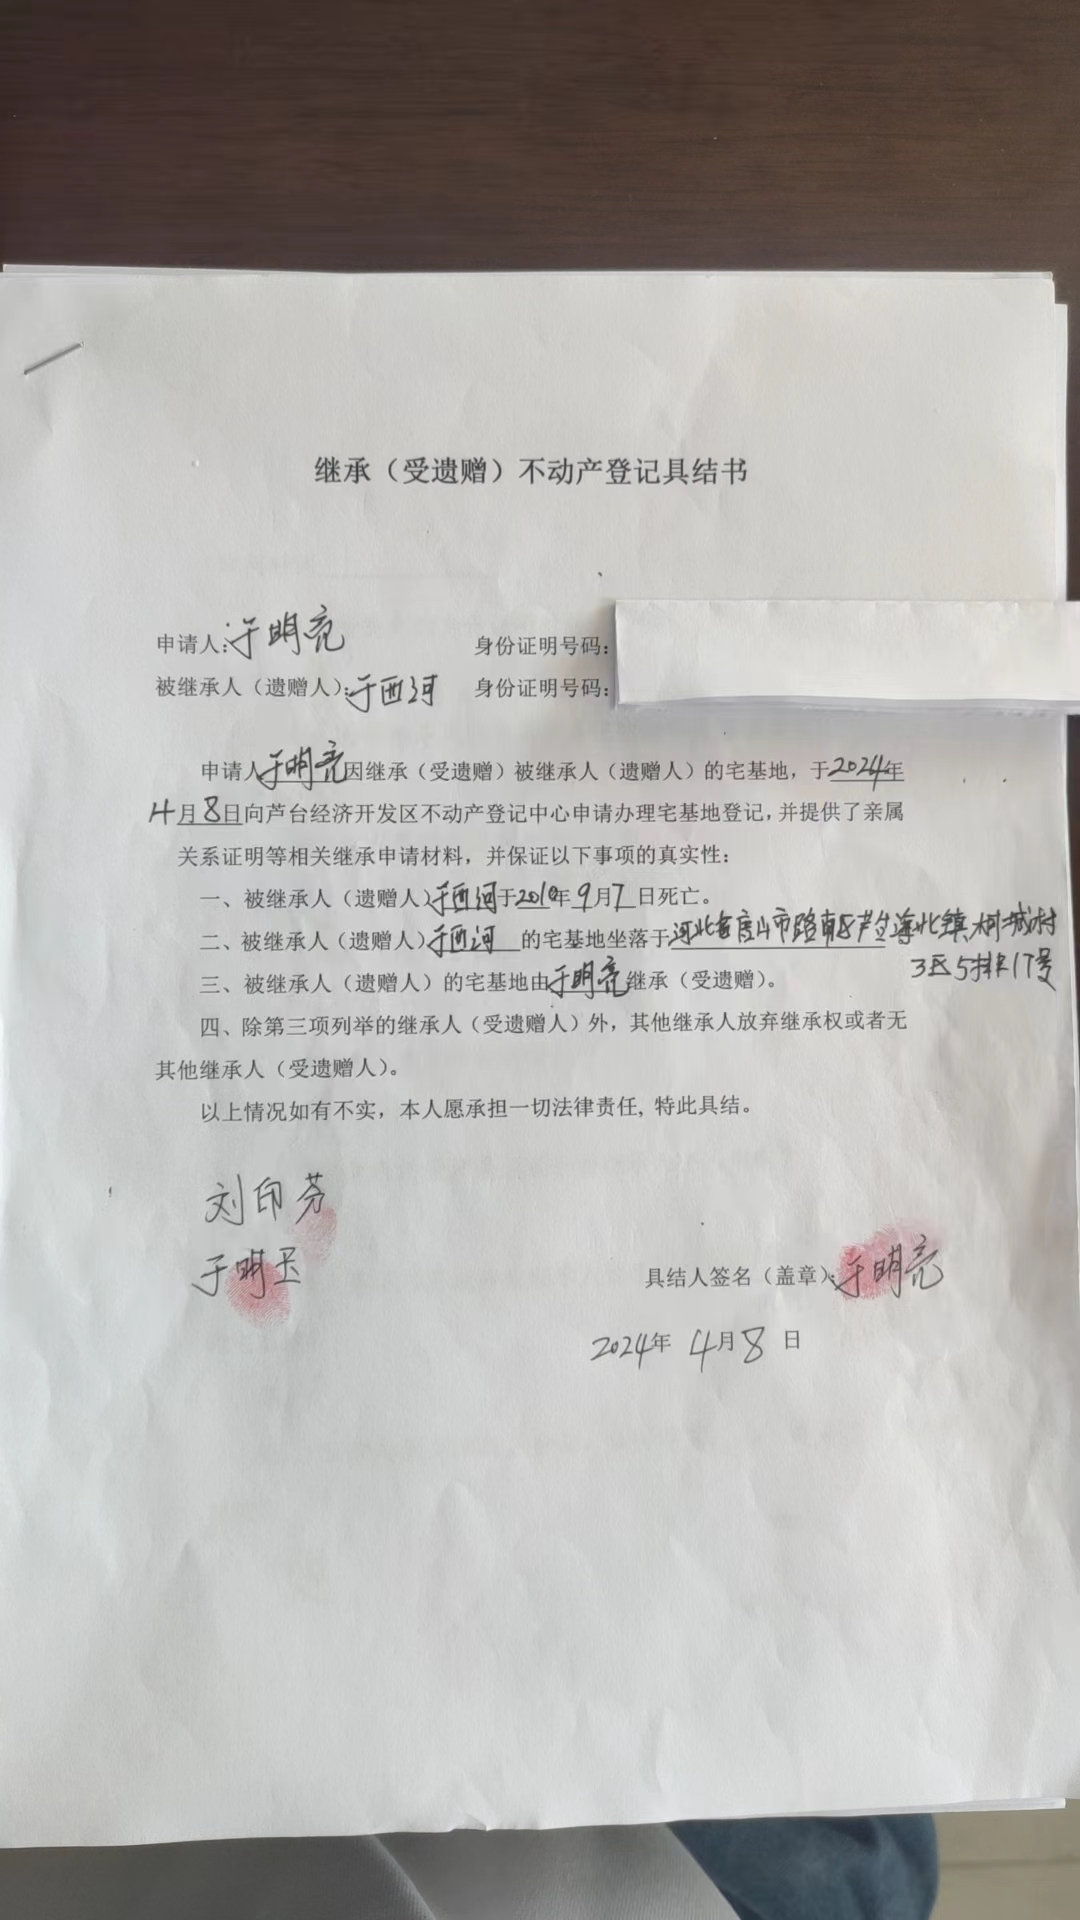 继承（受遗赠）不动产登记具结书
申请人：于明亮 身份证明号码：
被继承人（遗赠人）：于西河 身份证明号码：
申请人于明亮因继承（受遗赠）被继承人（遗赠人）的宅基地，于2024年
4月8日向芦台经济开发区不动产登记中心申请办理宅基地登记，并提供了亲属
关系证明等相关继承申请材料，并保证以下事项的真实性：
一、被继承人（遗赠人）于西河于2010年9月7日死亡。
二、被继承人（遗赠人）于西河的宅基地坐落于河北省唐山市路南区芦台海北镇 城村
3区5排17号
三、被继承人（遗赠人）的宅基地由于明亮继承（受遗赠）。
四、除第三项列举的继承人（受遗赠人）外，其他继承人放弃继承权或者无
其他继承人（受遗赠人）。
以上情况如有不实，本人愿承担一切法律责任，特此具结。
刘印芬
于明玉
具结人签名（盖章）：于明亮
2024年 4月8日